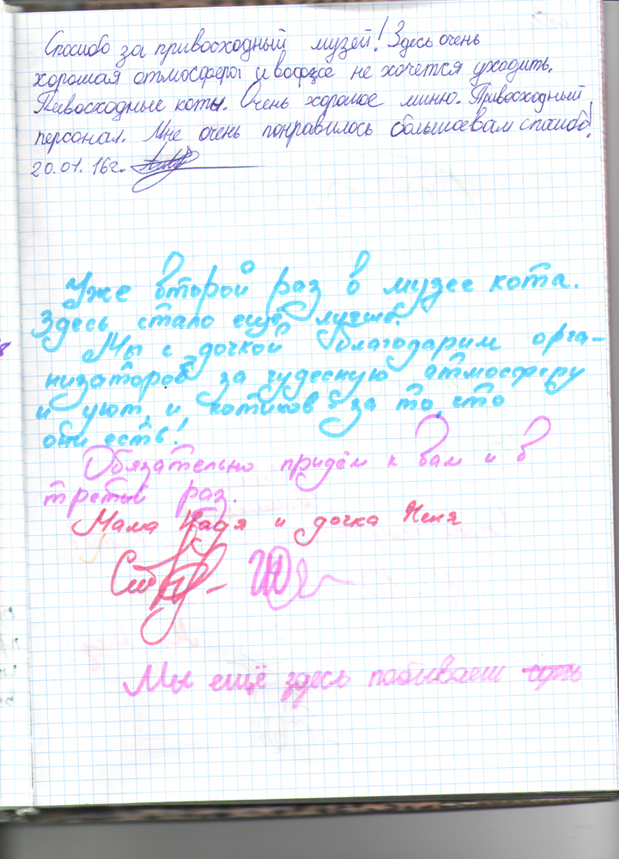 Спосибо за привосходный музей! Здесь очень
хорошая отмосфера и вообще не хочется уходить.
Привосходные коты. Очень хорошое миню. Привосходный
персонал. Мне очень понравилось большоевам спосибо!
20.01.16г.
Уже второй раз в музее кота.
Здесь стало ещё лучше.
Мы с дочкой благодарим орга-
низаторов за чудесную атмосферу
и уют, и котиков за то, что
они есть!
Обязательно придём к вам и в
третий раз.
Мама Надя и дочка
Мы ещё здесь побываем